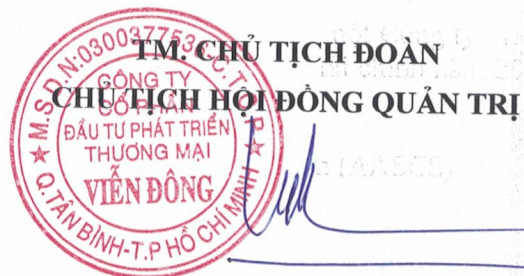 TM. CHỦ TỊCH ĐOÀN
CHỦ TỊCH HỘI ĐỒNG QUẢN TRỊ
M.S.D.N:0300377536-C.T.C.P
CÔNG TY
CỔ PHẦN
ĐẦU TƯ PHÁT TRIỂN
THƯƠNG MẠI
VIỄN ĐÔNG
Q.TÂN BÌNH-T.P HỒ CHÍ MINH
(AASCS)